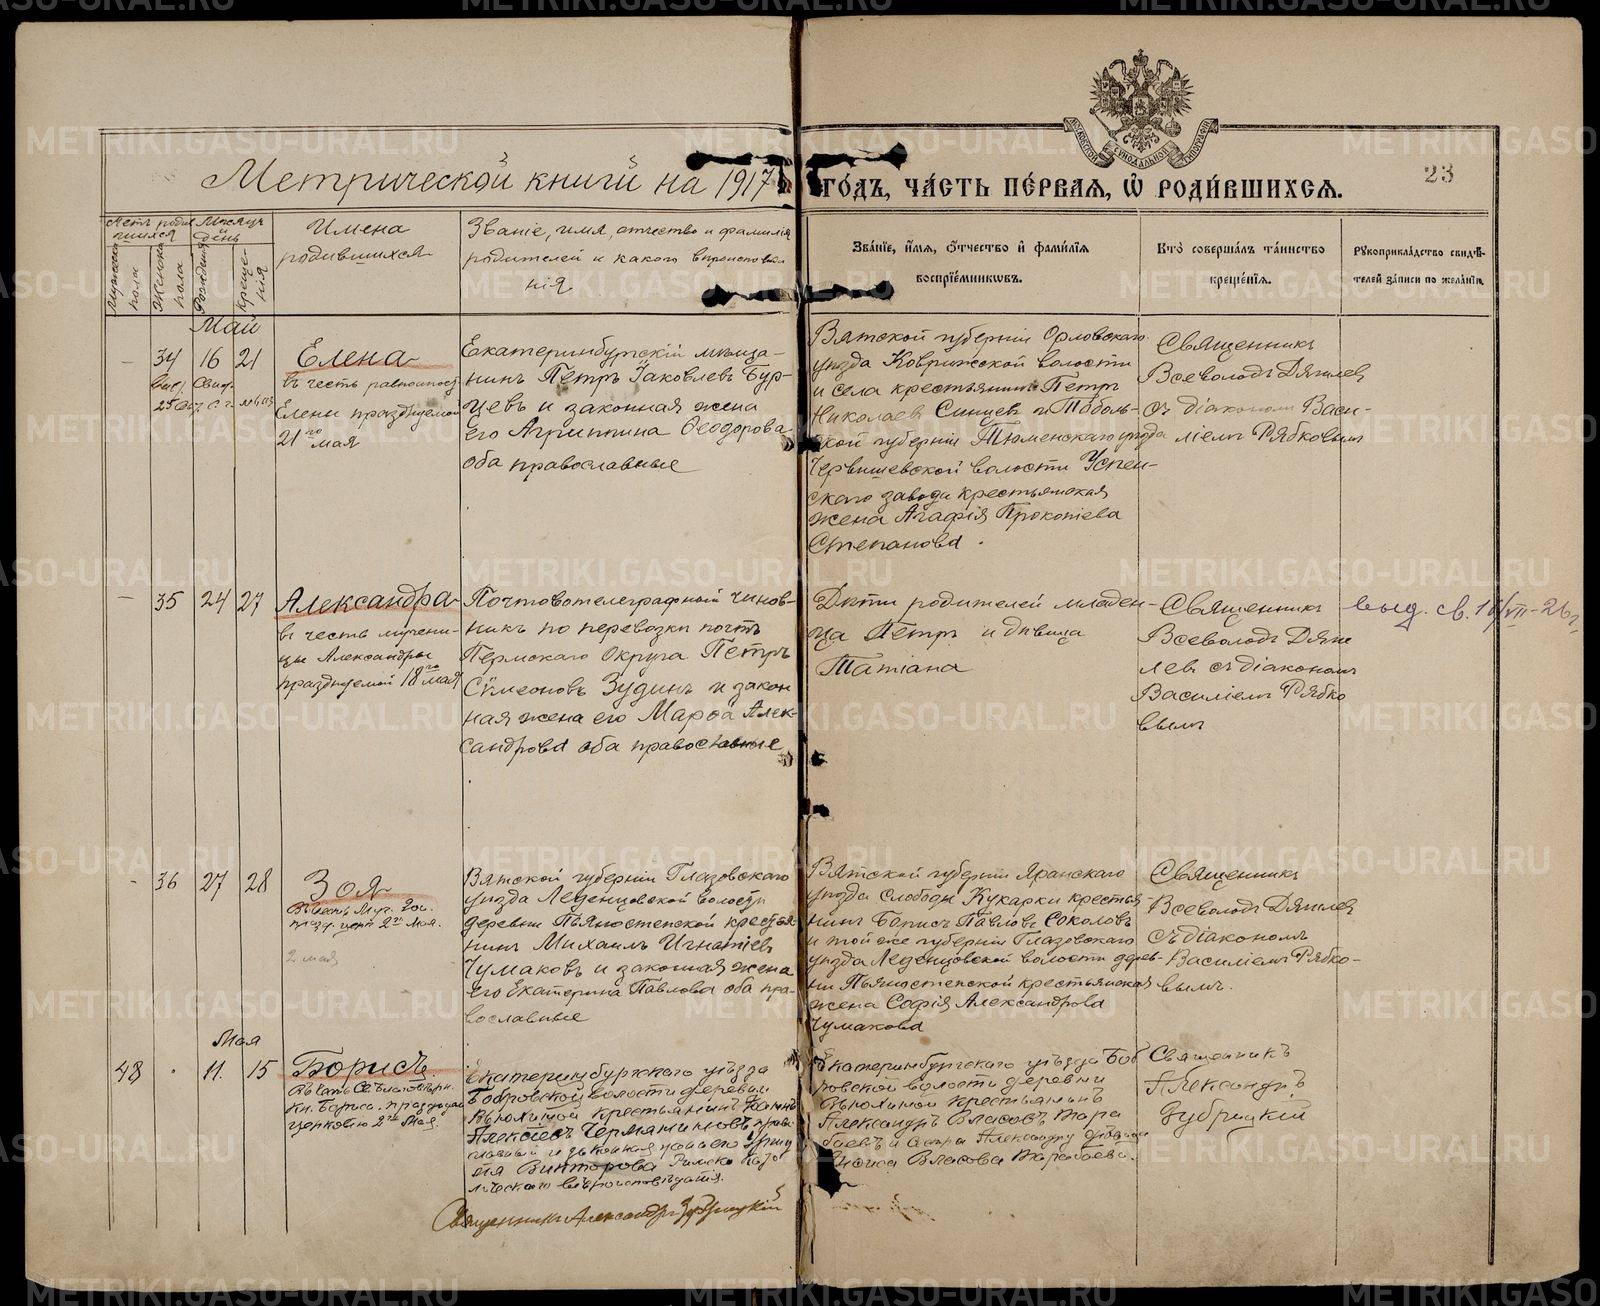 Метрической книги на 1917
го́дъ, ча́сть пе́рвая, ѡ҆ роди́вшихся.
23
МОСКОВСКОЙ СѴНОДАЛЬНОЙ ТИПОГРАФІИ
Имена
родившихся
Мужска
пола
Женска
пола
Месяцъ
и
день
Рожденія
Креще-
нія
Званіе, имя, отчество и фамилія
родителей и какого вѣроисповѣда
нія
Зва́нїе, и҆́мя, ѻ҆́тчество и҆ фами́лїя
воспрїе́мникѡвъ.
Кто̀ соверша́лъ та́инство
креще́нїѧ.
Рꙋкоприкла́дство свидѣ́-
телей за́писи по жела́нїю.
Май
34 16 21
Елена
въ честь равноапост
Елены празднуемой
21го мая
Екатеринбургскій мѣща-
нинъ Петръ Іаковлевъ Бур-
цевъ и законная жена
его Агриппина Ѳеодорова
оба православные
Вятской губерніи Орловскаго
уѣзда Ковритской волости
и села крестьянинъ Петръ
Николаев Синцев и Тоболь-
ской губерніи Тюменскаго уѣзда
Червишевской волости Успен-
скаго завода крестьянская
жена Агафія Прокопіева
Степанова.
Священникъ
Всеволодъ Дягилев
съ діакономъ Васи-
ліемъ Рябковымъ
— 35 24 27
Александра
въ честь мучени-
цы Александры
празднуемой 18го мая
Почтовотелеграфный чинов-
никъ по перевозкѣ почтъ
Пермскаго Округа Петръ
Сѵмеоновъ Зудинъ и закон
ная жена его Марѳа Алек-
сандрова оба православные
Дѣти родителей младен-
ца Петръ и дѣвица
Татіана
Священникъ
Всеволодъ Дяги
левъ съ діакономъ
Василіемъ Рябко
вымъ
выд. св. VII-26г.
- 36 27 28
Зоя
Въ честь Муч. Зои.
празд. церк. 2го Мая.
2 мая
Вятской губерніи Глазовскаго
уѣзда Леденцовской волости
деревни Пьяностепенской крестья
нинъ Михаилъ Игнатіевъ
Чумаковъ и законная жена
его Екатерина Павлова оба пра-
вославные
Вятской губерніи Яранскаго
уѣзда Слободы Кукарки крестья
нинъ Борисъ Павловъ Соколовъ
и той же губерніи Глазовскаго
уѣзда Леденцовской волости дерев-
ни Пьяностепенской крестьянская
жена Софія Александрова
Чумакова
Священникъ
Всеволодъ Дягилев
съ діакономъ
Василіемъ Рябко-
вымъ.
Мая
48 11. 15
Борисъ.
Кн. Бориса. празднуем
церковію 2го Мая.
Екатеринбургскаго уѣзда
Бобровской волости деревни
Вьюхиной крестьянинъ
Алексѣевъ Чермянинов прав.
и законная жена его
Викторова Римско Като
лическаго вѣроисповѣданія.
Священникъ Александръ Зубрицкій
Екатеринбургскаго уѣзда Боб
ровской волости деревни
Вьюхиной крестьянинъ
Александръ Власовъ Тара
баевъ
Власова Тарабаева.
Священникъ
Александръ
Зубрицкій
METRIKI.GASO-URAL.RU